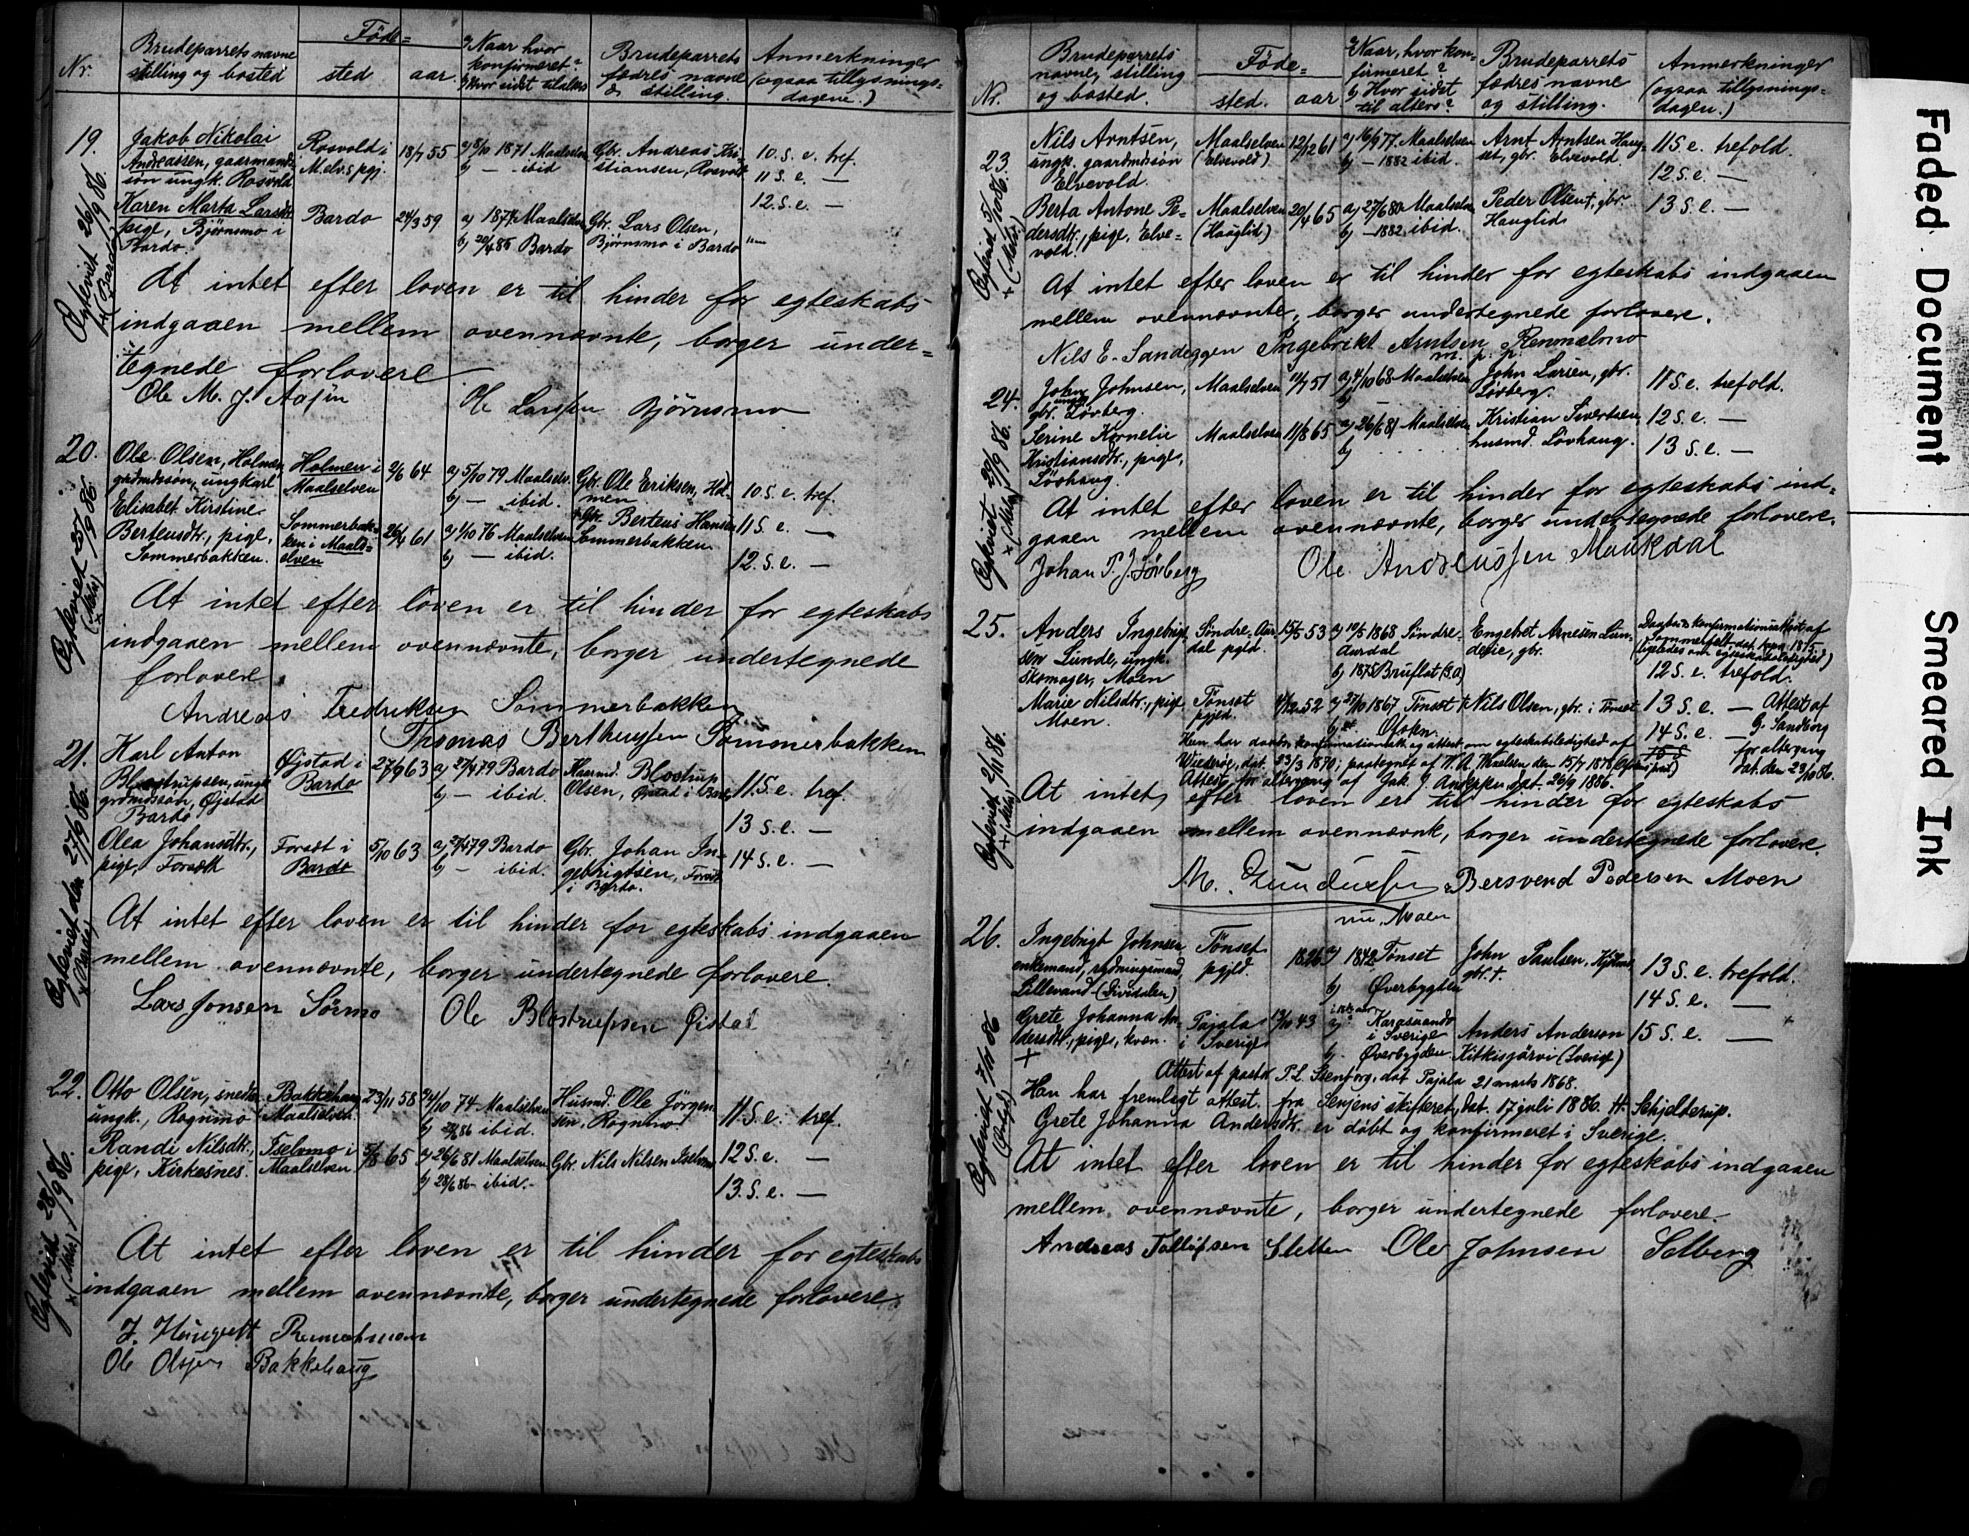 Nr.
Brudeparrets navne
stilling og bosted
Føde=
sted
aar
a) Naar hvor
konfirmeret?
b) Hvor sidst til alters
Brudeparrets
fædres navne
& stilling.
Anmerkninger
(ogsaa tillysnings=
dagene.)
19.
Jakob Nikolai
Andreassen, gaarmands
søn ungk. Rosvold
Rosvold i
M.elv.s pgj.
18/7 55
a) 8/10 1871 Maalselven
b) — ibid
Gbr. Andreas Kri-
stiansen, Rosvold
10. S. e. tref.
11 S. e. —
12. S. e. —
Karen Marta Larsdtr
pige, Bjørnsmo i
Bardo.
Bardo
24/3 59
a) 1874 Maalselven
b) 20/4 85 Bardo
Gbr. Lars Olsen,
Bjørnsmo i Bardo
Egteviet 26/9 86.
+ (Bardo)
At intet efter loven er til hinder for egteskabs
indgaaen mellem ovennævnte, borger under=
tegnede forlovere.
Ole M. J. Aasjin
Ole Larssen Bjørnsmo
20.
Ole Olsen, Holmen
grdmdssøn, ungkarl
Holmen i
Maalselven
2/6 64
a) 5/10 79 Maalselv.
b) — ibid.
Gbr. Ole Eriksen, Hol-
men
10. S. e. tref.
11 S. e. —
12. S. e. —
Elisabet Kirstine
Berteusdtr., pige,
Sommerbakken.
Sommerbak-
ken i Maals=
elven
26/4 61
a) 1/10 76 Maalselven
b) — ibid.
Gbr. Berteus Hansen
Sommerbakken
Egteviet 25/9 86.
+ (Mslv.)
At intet efter loven er til hinder for egteskabs
indgaaen mellem ovennævnte, borger undertegnede
forlovere.
Andreas Fredriksen Sommerbakken
Thomas Berthussen Sommerbakken
21.
Karl Anton
Blostrupsen, ungk
grdmdssøn, Øjstad
Bardo
Øjstad i
Bardo
27/9 63
a) 27/4 79 Bardo
b) — ibid.
Husmd. Blostrup
Olsen, Øjstad i Bardo
11. S. e. tref.
13 S. e. —
14 S. e. —
Olea Johansdtr.,
pige, Forsæth
Forsæt i
Bardo
5/10 63
a) 27/4 79 Bardo
b) — ibid.
Gbr. Johan In-
gebrigtsen, Forset
i Bardo.
Egteviet den 27/9 86.
+ (Bardo)
At intet efter loven er til hinder for egteskabs indgaaen
mellem ovennævnte, borger undertegnede forlovere.
Lars Jonsen Sörmo
Ole Blostrupsen Øistad
22.
Otto Olsen, snedker
ungk., Rognmo
Bakkehaug i
Maalselven.
23/11 58
a) 4/10 74 Maalselven
b) 28/6 86 ibid.
Husmd. Ole Jörgen
sen, Rognmo
11. S. e. tref.
12 S. e. —
13. S. e. —
Randi Nilsdtr.,
pige, Kirkesnes.
Iselvmo i
Maalselven
5/8 65
a) 26/6 81 Maalselven
b) 28/6 86 - ibid.-
Gbr. Nils Nilsen Iselvmo
Egteviet 28/9 86.
+ (Mslv.)
At intet efter loven er til hinder for egteskabs
indgaaen mellem ovennævnte, borger undertegnede forlovere.
Ole Olsen Bakkehaug
Nr.
Brudeparrets
navne, stilling
og bosted.
Føde=
sted.
aar
a) Naar, hvor kon-
firmeret?
b) Hvor sidst
til alters?
Brudeparrets
fædres navne
og stilling.
Anmerkninger
(ogsaa tillysnings=
dagen.)
23.
Nils Arntsen,
ungk. gaardmdssøn
Elvevold.
Maalselven
(Elvevold)
12/12 61
a) 16/9 77. Maalselven
b) — 1882 ibid.
Arnt Arntsen Haug-
set, gbr. Elvevold.
11 S. e. trefold.
12. S. e. —
13 S. e. —
Berta Antone Pe-
dersdtr., pige, Elve=
vold.
Maalselven
(Hauglid)
20/4 65
a) 27/6 80 Maalselven
b) — 1882 ibid.
Peder Olsen †, gbr.
Hauglid
Egteviet 5/10 86.
+ (Mslv.)
At intet efter loven er til hinder for egteskabs indgaaen
mellem ovennævnte, borger undertegnede forlovere.
Nils E. Sandeggen Ingebrikt Arntsen Rennælmo
m. p. p.
24.
John Johnsen,
ungk.
gbr. Løvberg.
Maalselven
11/7 51
a) 4/10 68 Maalselven
b)
John Larsen, gbr.
Lövberg.
11 S. e. trefold.
12 S. e. —
13 S. e. —
Serine Kornelie
Kristiansdtr., pige,
Lövhaug.
Maalselven
11/8 65
a) 26/6 81 Maalselven
b)
Kristian Sivertsen
husmd. Lövhaug.
Egteviet 29/9 86.
+ (Mslv.)
At intet efter loven er til hinder for egteskabs ind=
gaaen mellem ovennævnte, borger undertegnede forlovere.
Johan P. J. Lövberg
Ole Andreassen Maukdal
25.
Anders Ingebrigt
sen Lunde, ungk.
skomager, Moen
Søndre-Aur
dal pgld.
15/5 53
a) 10/5 1868 Søndre-
Aurdal
b) 1875 Bruflat (S.A)
Engebret Arnesen Lun-
deeie, gbr.
12 S. e. trefold.
13 S. e. —
14 S. e. —
Attest af
G. Sandberg
for altergang
dat. den 23/10 86.
Marie Nilsdtr., pige
Moen.
Tönset
pgjld.
4/12 52
a) 27/10 1867 Tönset
b) Ofoten.
† Nils Olsen, gbr. i Tönset
Hun har daabs-, konfirmationsatt. og attest om egteskabsledighed af
Attest for altergang af Jak. J. dat. 26/9 1886.
Egteviet 2/11 86.
+ (Mslv.)
At intet efter loven er til hinder for egteskabs
indgaaen mellem ovennævnte, borger undertegnede forlovere.
M. Gundersen Bersvend Pedersen Moen
nu Moen
26.
Ingebrigt Johnsen
enkemand, rydningsmand,
Lillevand (Dividalen)
Tönset
pgjld.
1826
a) 1842 Tönset
b) Øverbygden
John Paulsen,
gbr. †.
13 S. e. trefold.
14 S. e. —
15 S. e. —
Grete Johanna An-
dersdtr., pige, kvæn.
+
Pajala
i Sverige
43
a) Karesuando
i Sverige
b) Øverbygden
Anders Anderson
Kitkisjärvi (Sverige)
Attest af pastor P. L. Stenborg, dat Pajala 21 marts 1868.
Han har fremlagt attest fra Senjens skifteret, dat. 17 juli 1886. H. Schjelderup.
Grete Johanna Andersdtr. er döbt og konfirmeret i Sverige.
At intet efter loven er til hinder for egteskabs indgaaen
mellem ovennævnte, borger undertegnede forlovere.
Andreas Tollefsen Sletten Ole Johnsen Solberg
Faded Document
Smeared Ink